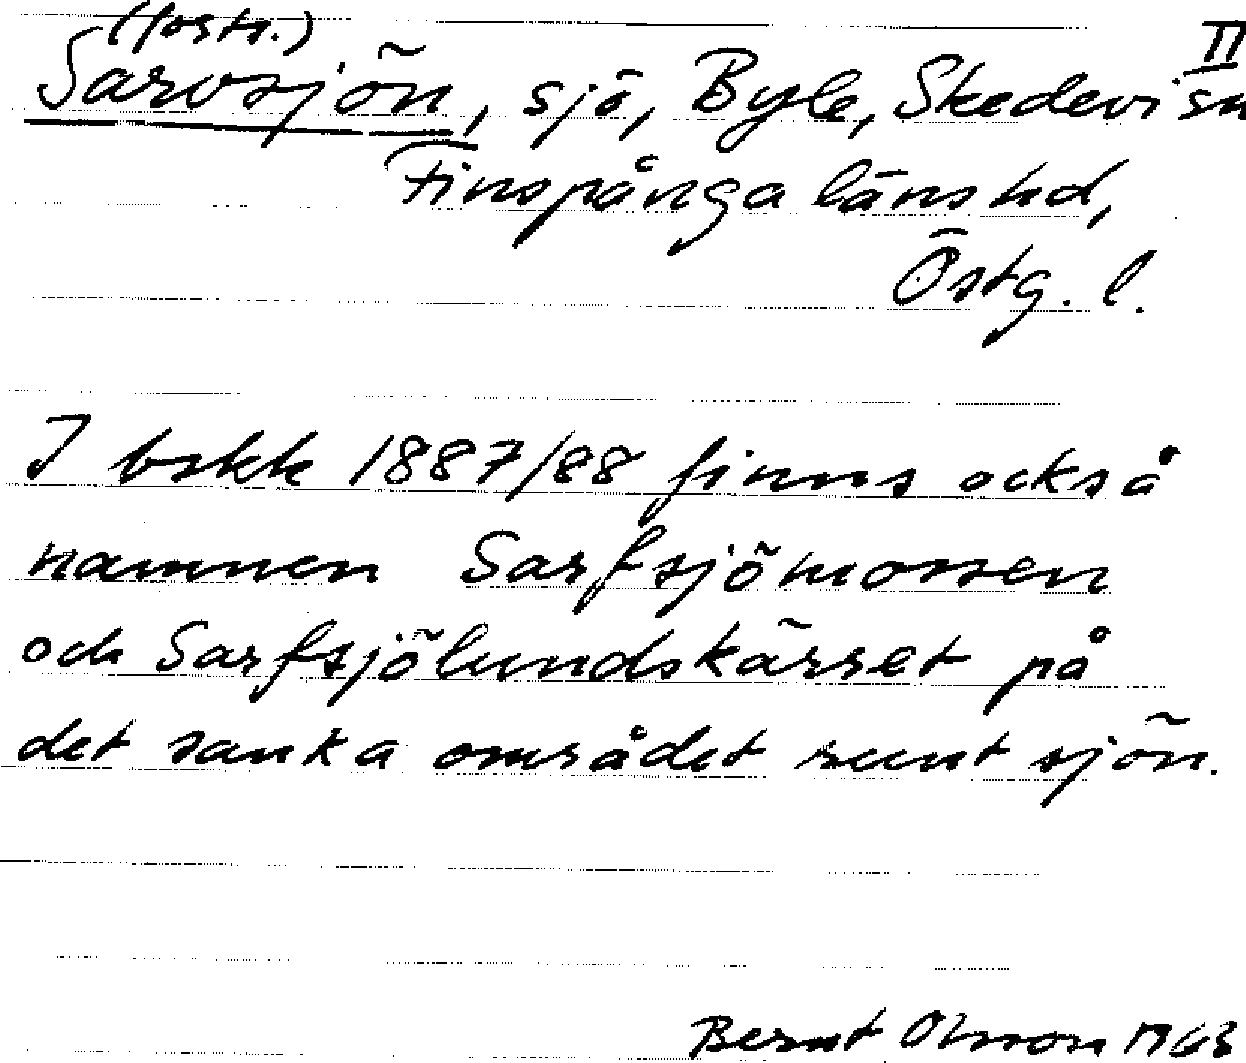 (forts.)
II
Sarvsjön, sjö, Byle, Skedevi sn
Finspånga länshd,
Östg. l.
I bskk 1887/88 finns också
namnen Sarfsjömossen
och Sarfsjölundskärret på
det sanka området runt sjön.
Bernt Olsson 1963